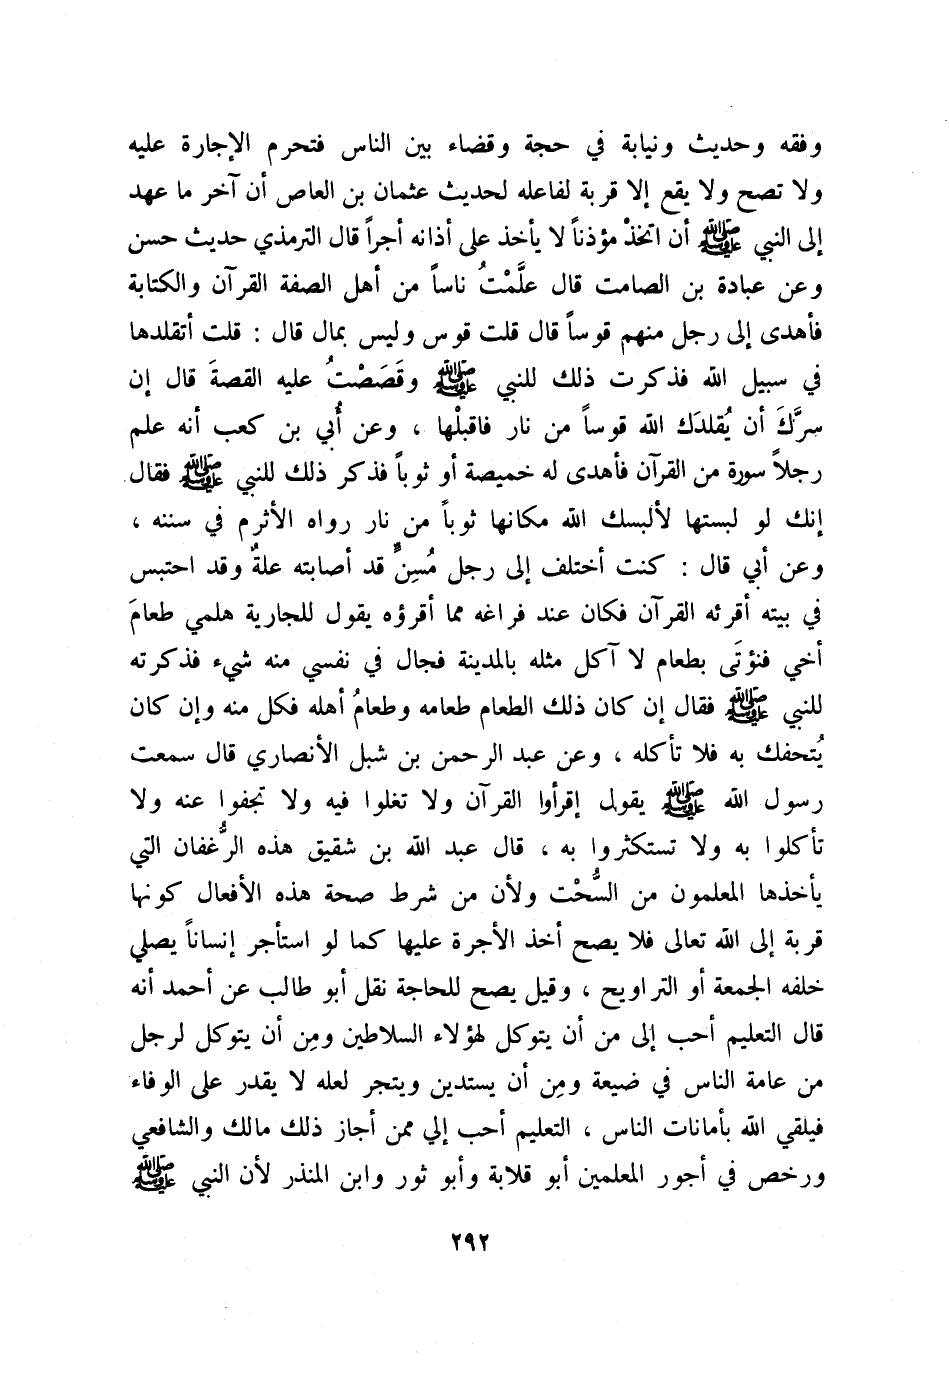 وفقه وحديث ونيابة في حجة وقضاء بين الناس فتحرم الإجارة عليه
ولا تصح ولا يقع إلا قربة لفاعله لحديث عثمان بن العاص أن آخر ما عهد
إلى النبي ﷺ أن اتخذْ مؤذناً لا يأخذ على أذانه أجراً قال الترمذي حديث حسن
وعن عبادة بن الصامت قال علَّمْتُ ناساً من أهل الصفة القرآن والكتابة
فأهدى إلى رجل منهم قوساً قال قلت قوس وليس بمال قال : قلت أتقلدها
في سبيل الله فذكرت ذلك للنبي ﷺ وقَصَصْتُ عليه القصةَ قال إن
سرَّكَ أن يُقلدَك الله قوساً من نار فاقبلْها ، وعن أُبي بن كعب أنه علم
رجلاً سورة من القرآن فأهدى له خميصة أو ثوباً فذكر ذلك للنبي ﷺ فقال
إنك لو لبستها لألبسك الله مكانها ثوباً من نار رواه الأثرم في سننه ،
وعن أبي قال : كنت أختلف إلى رجل مُسِنٍّ قد أصابته علةٌ وقد احتبس
في بيته أقرئه القرآن فكان عند فراغه مما أقرؤه يقول للجارية هلمي طعامَ
أخي فنؤتَى بطعام لا آكل مثله بالمدينة فجال في نفسي منه شيء فذكرته
للنبي ﷺ فقال إن كان ذلك الطعام طعامه وطعامُ أهله فكل منه وإن كان
يُتحفك به فلا تأكله ، وعن عبد الرحمن بن شبل الأنصاري قال سمعت
رسول الله ﷺ يقول إقرأوا القرآن ولا تغلوا فيه ولا تجفوا عنه ولا
تأكلوا به ولا تستكثروا به ، قال عبد الله بن شقيق هذه الرُّغفان التي
يأخذها المعلمون من السُّحْت ولأن من شرط صحة هذه الأفعال كونها
قربة إلى الله تعالى فلا يصح أخذ الأجرة عليها كما لو استأجر إنساناً يصلي
خلفه الجمعة أو التراويح ، وقيل يصح للحاجة نقل أبو طالب عن أحمد أنه
قال التعليم أحب إلى من أن يتوكل لهؤلاء السلاطين ومِن أن يتوكل لرجل
من عامة الناس في ضيعة ومِن أن يستدين ويتجر لعله لا يقدر على الوفاء
فيلقي الله بأمانات الناس ، التعليم أحب إلي ممن أجاز ذلك مالك والشافعي
ورخص في أجور المعلمين أبو قلابة وأبو ثور وابن المنذر لأن النبي ﷺ
٢٩٢